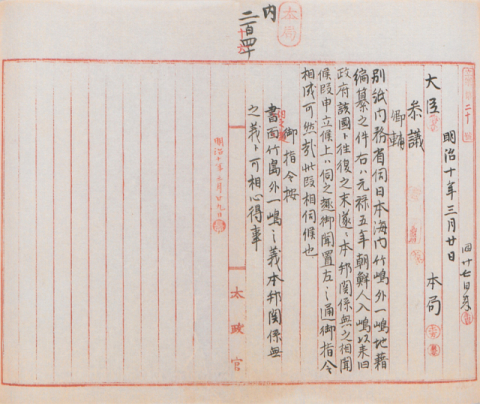 太局
内
二百四十
明治十年三月廿日
本局
大臣
参議
卿輔
別紙内務省伺日本海内竹嶋外一嶋地籍
編纂之件右ハ元禄五年朝鮮人入嶋以来旧
政府該國ト往復之末遂ニ本邦関係無之相聞
候段申立候上ハ伺之趣御聞置左之通御指令
相成可然哉此段相伺候也
御指令按
書面竹島外一嶋之義本邦関係無
之義ト可相心得事
明治十年三月廿九日
太政官